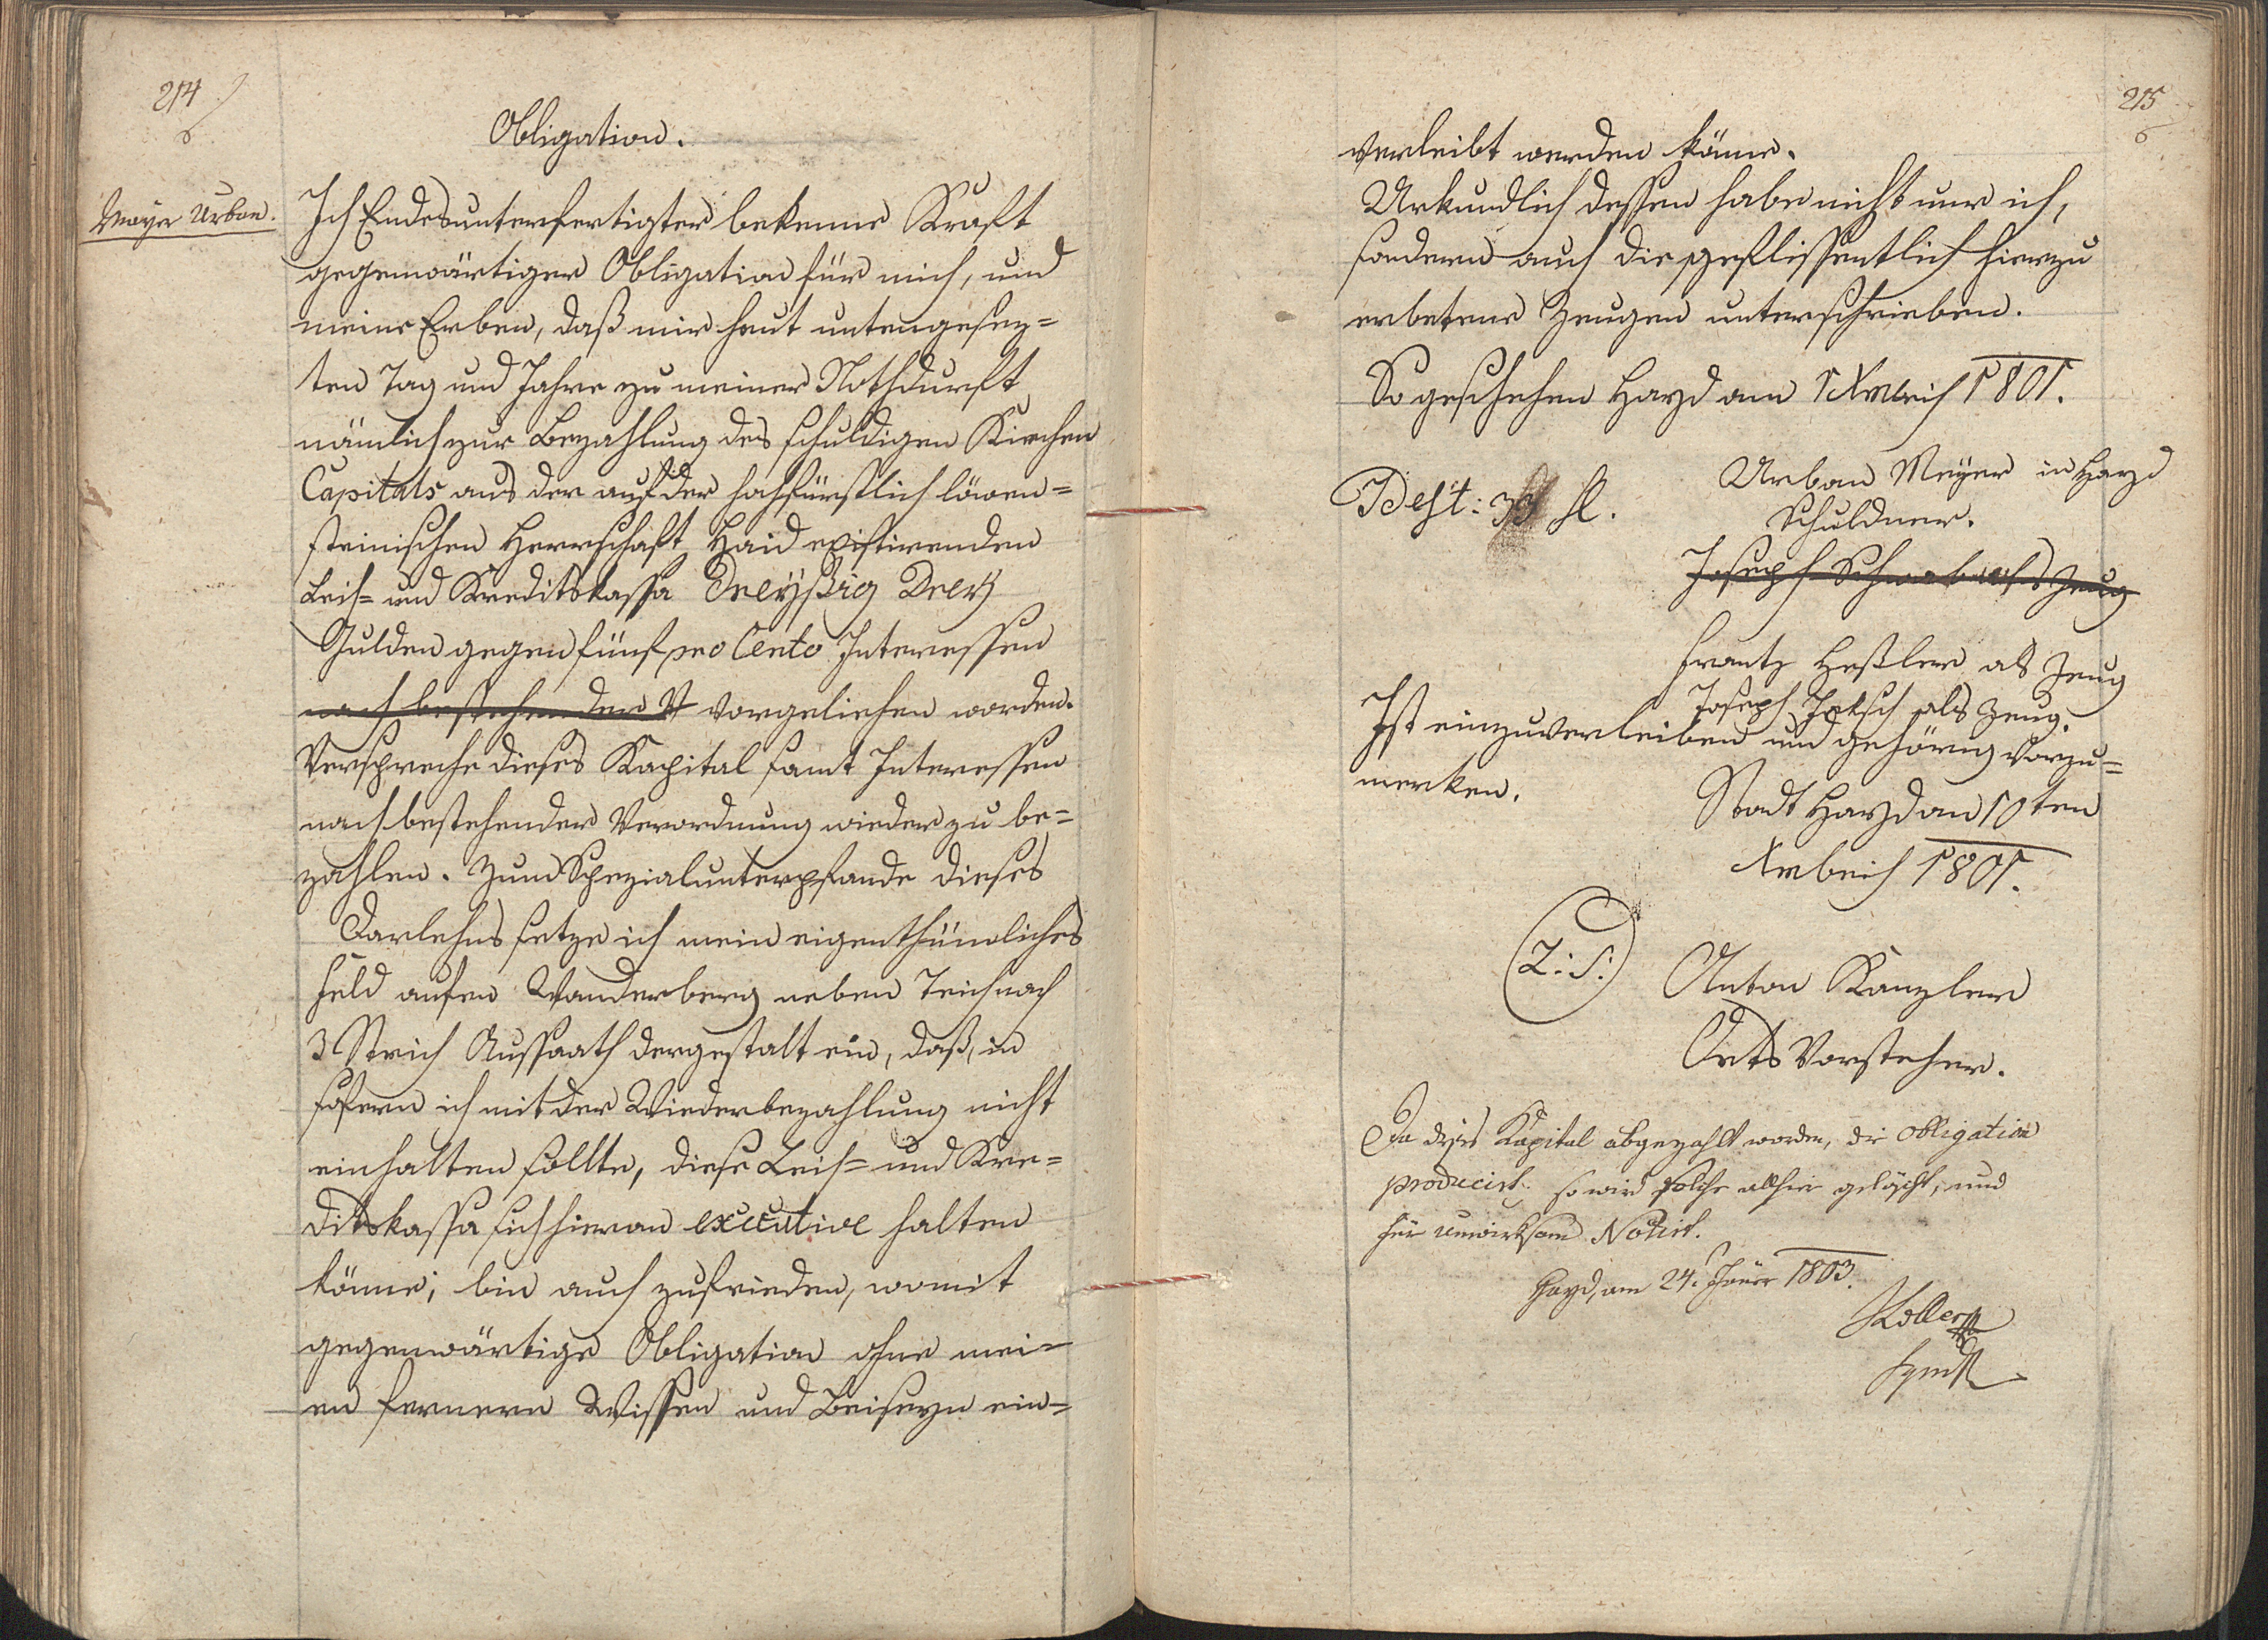 214
Obligation.
Mayer Urban.
Ich Endesunterfertigter bekenne Kraft
gegenwärtiger Obligation für mich, und
meine Erben, daß mir heut untengesez=
ten Tag und Jahre zu meiner Nothdurft
nämlich zur Bezahlung des schuldigen Kirchen
Capitals aus der auf der hochfürstlich löwen=
steinischen Herrschaft Haid existirenden
Leih= und Kreditskassa Dreyßig Drey
Gulden gegen fünf pro Cento Interessen
nach bestehender V vorgeliehen worden.
Verspreche dieses Kapital samt Interessen
nach bestehender Verordnung wieder zu be=
zahlen. Zum Spezialunterpfande dieses
Darlehns setze ich mein eigenthümliches
Feld aufen Wanderberg neben Teich nach
3 Strich Aussaath dergestalt ein, daß, in
sofern ich mit der Wiederbezahlung nicht
einhalten sollte, diese Leih= und Kre=
ditskassa sich hieran executive halten
könne; bin auch zufrieden, womit
gegenwärtige Obligation ohne mei=
en fernern Wissen und Beiseyn ein=
215
verleibt werden könne.
Urkundlich dessen habe nicht nur ich,
sondern auch die geflissentlich hierzu
erbetene Zeugen unterschrieben.
So geschehen Hayd am 1 Xbris 1801.
Best: 33 fl.
Urban Meyer in Hayd
Schuldner.
Joseph Schwab als Zeug
Frantz Heßler als Zeug
Joseph Jaksch als Zeug.
Ist einzuverleiben und gehörig vorzu=
merken.
Stadt Hayd am 10ten
Xbris 1801.
L: S:
Anton Kanzler
Orts Vorsteher.
Da dises Kapital abgezahlt worden, die Obligation
producirt. so wird solche allhier gelöscht, und
für unwirksam Notirt.
Hayd, am 24. Jäner 1803.
Koller
Synd